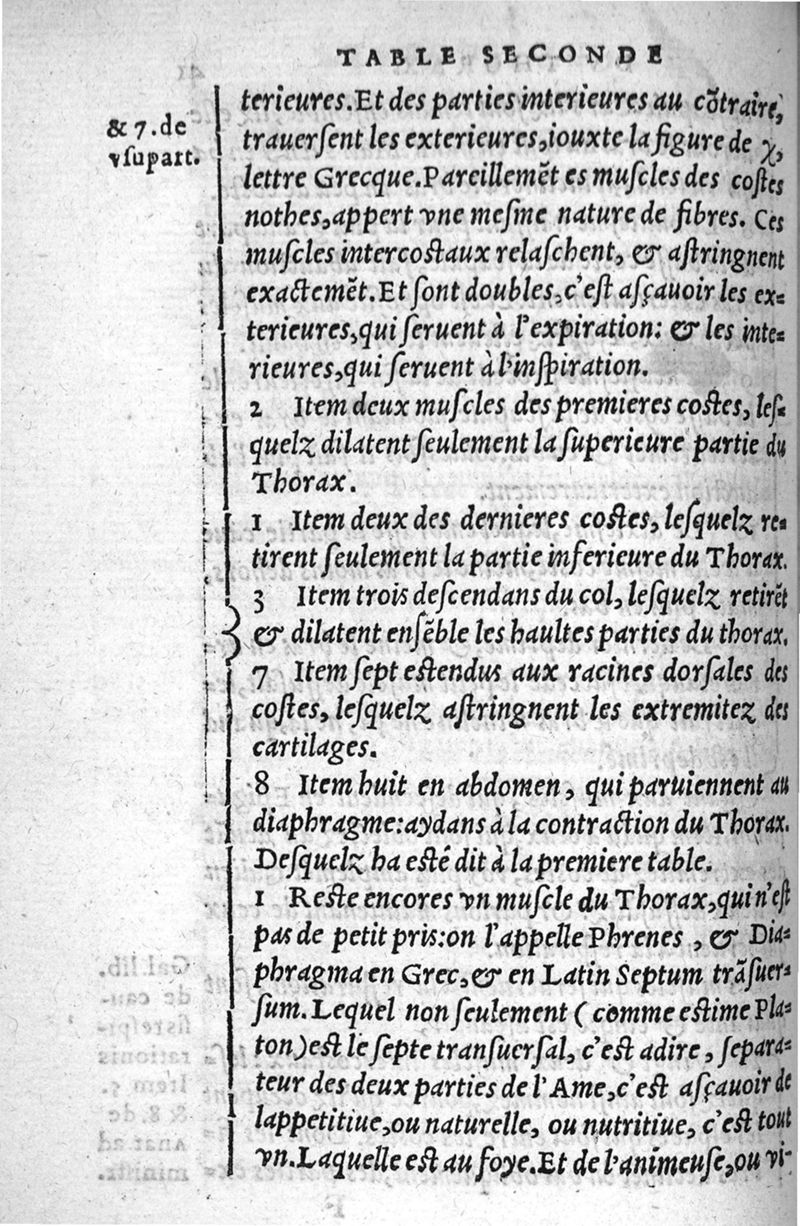 TABLE SECONDE
& 7. de
vſupart.
terieures. Et des parties interieures au cõtraire,
trauerſent les exterieures, iouxte la figure de χ,
lettre Grecque. Pareillemẽt es muſcles des coſtes
nothes, appert vne meſme nature de fibres. Ces
muſcles intercoſtaux relaſchent, & aſtringnent
exactemẽt. Et ſont doubles, c'eſt aſçauoir les ex-
terieures, qui ſeruent à l'expiration: & les inte-
rieures, qui ſeruent à l'inſpiration.
2 Item deux muſcles des premieres coſtes, leſ-
quelz dilatent ſeulement la ſuperieure partie du
Thorax.
1 Item deux des dernieres coſtes, leſquelz re-
tirent ſeulement la partie inferieure du Thorax.
3 Item trois deſcendans du col, leſquelz retirẽt
& dilatent enſẽble les haultes parties du thorax.
7 Item ſept eſtendus aux racines dorſales des
coſtes, leſquelz aſtringnent les extremitez des
cartilages.
8 Item huit en abdomen, qui paruiennent au
diaphragme: aydans à la contraction du Thorax.
Deſquelz ha eſté dit à la premiere table.
1 Reſte encores vn muſcle du Thorax, qui n'eſt
pas de petit pris: on l'appelle Phrenes, & Dia-
phragma en Grec, & en Latin Septum trãſuer-
ſum. Lequel non ſeulement (comme eſtime Pla-
ton) eſt le ſepte tranſuerſal, c'eſt adire, ſepara-
teur des deux parties de l'Ame, c'eſt aſçauoir de
lappetitiue, ou naturelle, ou nutritiue, c'eſt tout
vn. Laquelle eſt au foye. Et de l'animeuſe, ou vi-